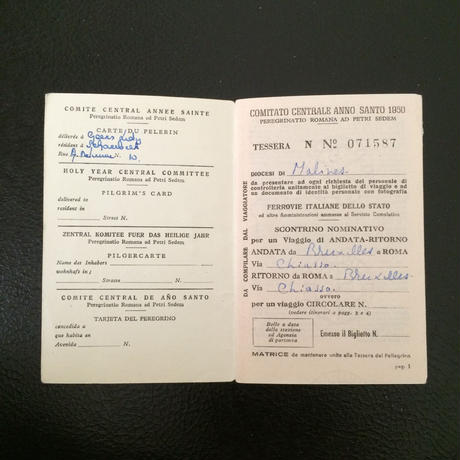 COMITE CENTRAL ANNEE SAINTE
Peregrinatio Romana ad Petri Sedem
CARTE DU PELERIN
délivrée à
résidant à Schaerbeek
Rue N. 10.
HOLY YEAR CENTRAL COMMITTEE
Peregrinatio Romana ad Petri Sedem
PILGRIM'S CARD
delivered to
resident in
Street N.
ZENTRAL KOMITEE FUER DAS HEILIGE JAHR
Peregrinatio Romana ad Petri Sedem
PILGERCARTE
Name des Inhabers
wohnhaft in
Strasse N.
COMITE CENTRAL DE AÑO SANTO
Peregrinatio Romana ad Petri Sedem
TARJETA DEL PEREGRINO
concedida a
que habita en
Avenida N.
COMITATO CENTRALE ANNO SANTO 1950
PEREGRINATIO ROMANA AD PETRI SEDEM
TESSERA N Nº 071587
DIOCESI DI Malines
da presentare ad ogni richiesta del personale di
controlleria unitamente al biglietto di viaggio e ad
un documento di identità personale con fotografia
FERROVIE ITALIANE DELLO STATO
ed altre Amministrazioni ammesse al Servizio Cumulativo
SCONTRINO NOMINATIVO
per un Viaggio di ANDATA-RITORNO
ANDATA da Bruxelles a ROMA
Via Chiasso.
RITORNO da ROMA a Bruxelles
Via Chiasso.
ovvero
per un viaggio CIRCOLARE N.
(vedere itinerari a pagg. 3 e 4)
DA COMPILARE DAL VIAGGIATORE
Bollo a data
della stazione
od Agenzia
di partenza
Emesso il Biglietto N.
MATRICE da mantenere unita alla Tessera del Pellegrino
pag. 1